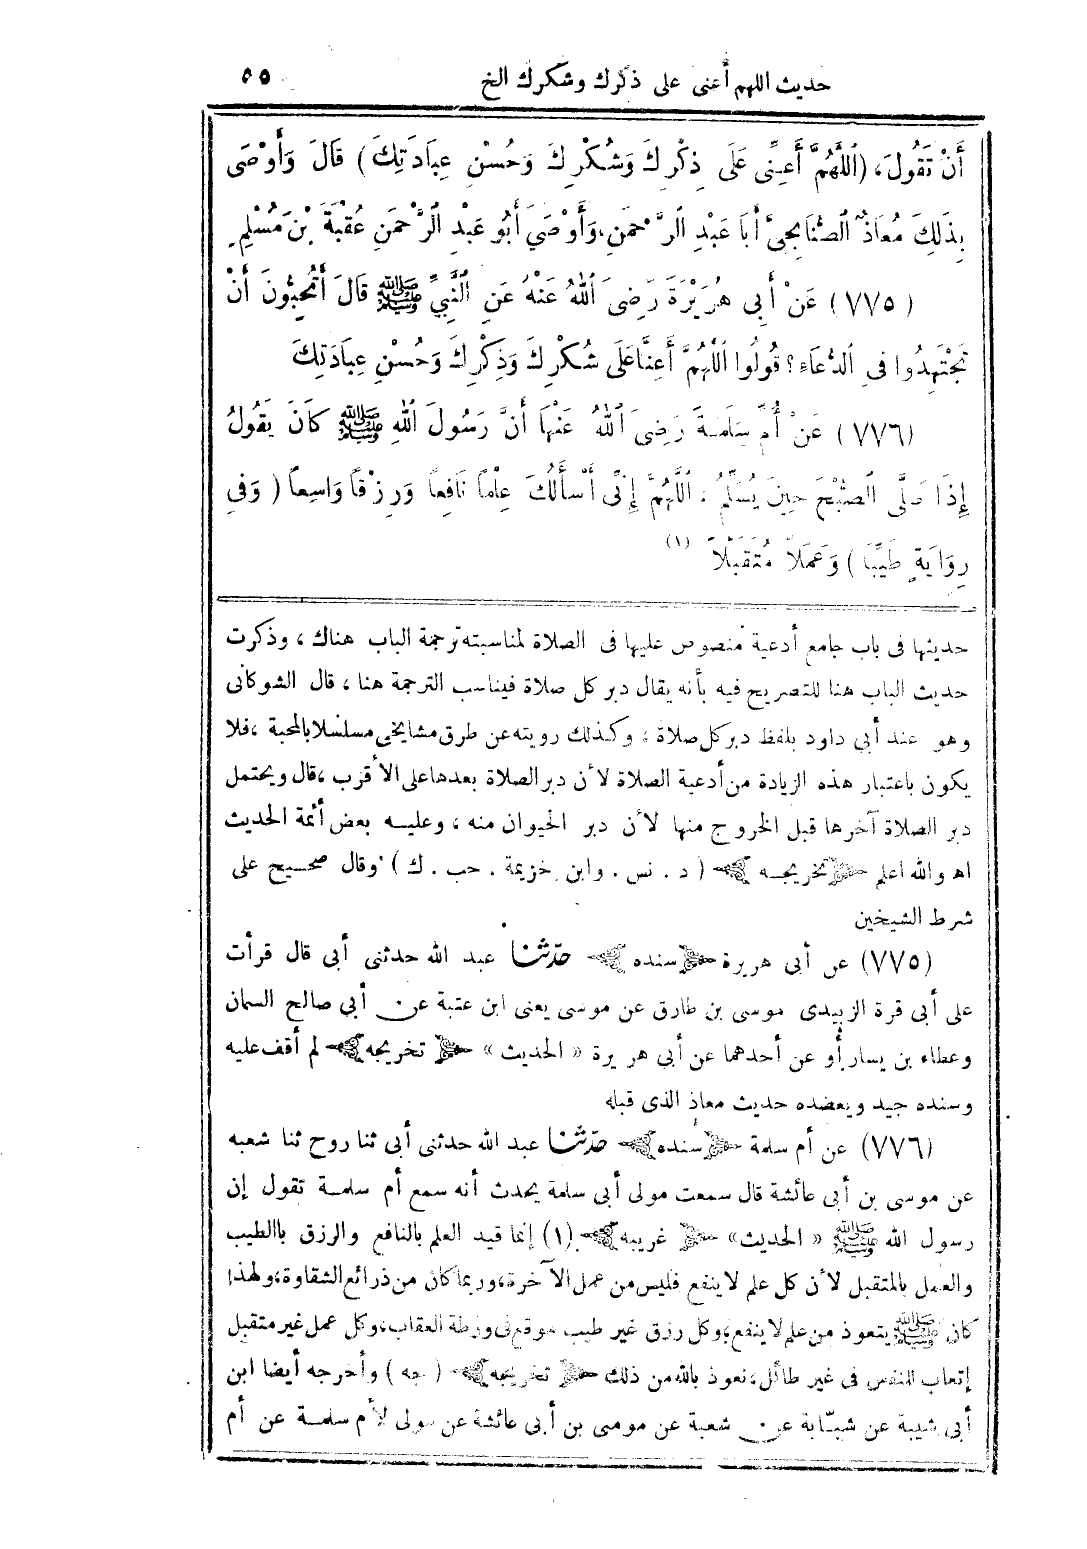 حديث اللهم أعنى على ذكرك وشكرك الخ ٥٥
أَنْ تَقُولَ، (اَللَّهُمَّ أَعِنِّى عَلَى ذِكْرِكَ وَشُكْرِكَ وَحُسْنِ عِبَادَتِكَ) قَالَ وَأَوْصَى
بِذَلِكَ مُعَاذٌ الصُّنَابِحِىَّ أَبَا عَبْدِ الرَّحْمَنِ، وَأَوْصَى أَبُو عَبْدِ الرَّحْمَنِ عُقْبَةَ بْنَ مُسْلِمٍ
(٧٧٥) عَنْ أَبِى هُرَيْرَةَ رَضِىَ اللهُ عَنْهُ عَنِ النَّبِيِّ ﷺ قَالَ أَتُحِبُّونَ أَنْ
تَجْتَهِدُوا فِى الدُّعَاءِ؟ قُولُوا اَللَّهُمَّ أَعِنَّا عَلَى شُكْرِكَ وَذِكْرِكَ وَحُسْنِ عِبَادَتِكَ
(٧٧٦) عَنْ أُمِّ سَلَمَةَ رَضِىَ اللهُ عَنْهَا أَنَّ رَسُولَ اللهِ ﷺ كَانَ يَقُولُ
إِذَا صَلَّى الصُّبْحَ حِينَ يُسَلِّمُ، اَللَّهُمَّ إِنِّى أَسْأَلُكَ عِلْمًا نَافِعًا وَرِزْقًا وَاسِعًا (وَفِى
رِوَايَةٍ طَيِّبًا) وَعَمَلًا مُتَقَبَّلًا (١)
حديثها فى باب جامع أدعية منصوص عليها فى الصلاة لمناسبته ترجمة الباب هناك، وذكرت
حديث الباب هنا للتصريح فيه بأنه يقال دبر كل صلاة فيناسب الترجمة هنا، قال الشوكانى
وهو عند أبي داود بلفظ دبر كل صلاة، وكذلك رويته عن طرق مشايخى مسلسلا بالمحبة، فلا
يكون باعتبار هذه الزيادة من أدعية الصلاة لأن دبر الصلاة بعدها على الأقرب، قال ويحتمل
دبر الصلاة آخرها قبل الخروج منها لأن دبر الحيوان منه، وعليه بعض أئمة الحديث
اه والله اعلم تخريجه (د. نس. وابن خزيمة. حب. ك) وقال صحيح على
شرط الشيخين
(٧٧٥) عن أبى هريرة سنده حدثنا عبد الله حدثنى أبى قال قرأت
على أبى قرة الزبيدى موسى بن طارق عن موسى يعنى ابن عتبة عن أبي صالح السمان
وعطاء بن يسار أو عن أحدهما عن أبى هريرة «الحديث» تخريجه لم أقف عليه
وسنده جيد ويعضده حديث معاذ الذى قبله
(٧٧٦) عن أم سلمة سنده حدثنا عبد الله حدثنى أبى ثنا روح ثنا شعبه
عن موسى بن أبى عائشة قال سمعت مولى أبى سلمة يحدث أنه سمع أم سلمة تقول إن
رسول الله ﷺ «الحديث» غريبه (١) إنما قيد العلم بالنافع والرزق باالطيب
والعمل بالمتقبل لأن كل علم لا ينفع فليس من عمل الآخرة، وربما كان من ذرائع الشقاوة، ولهذا
كان ﷺ يتعوذ من علم لا ينفع، وكل رزق غير طيب موقع فى ورطة العقاب، وكل عمل غير متقبل
إتعاب للنفس فى غير طائل، نعوذ بالله من ذلك تخريجه (جه) وأخرجه أيضا ابن
أبى شيبة عن شبّابة عن شعبة عن موسى بن أبى عائشة عن مولى لأم سلمة عن أم